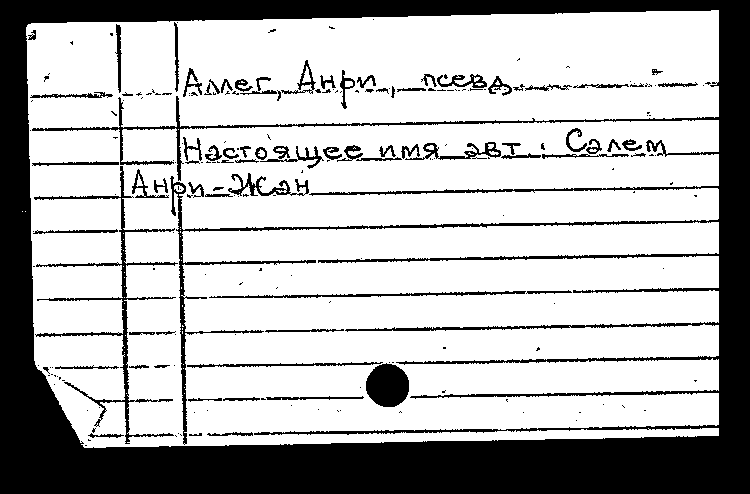 Аллег, Анри, псевд.
Настоящее имя авт.: Салем
Анри-Жан